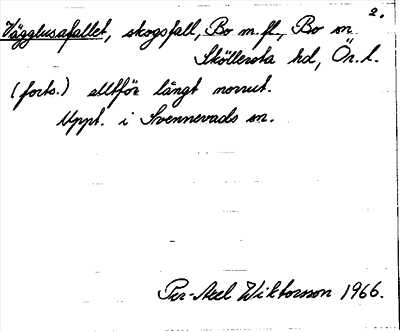 2.
Vägglusafallet, skogsfall, Bo m.fl., Bo sn
Sköllersta hd, Ör. l.
(forts.) alltför långt norrut.
Uppt. i Svennevads sn.
Per-Axel Wiktorsson 1966.